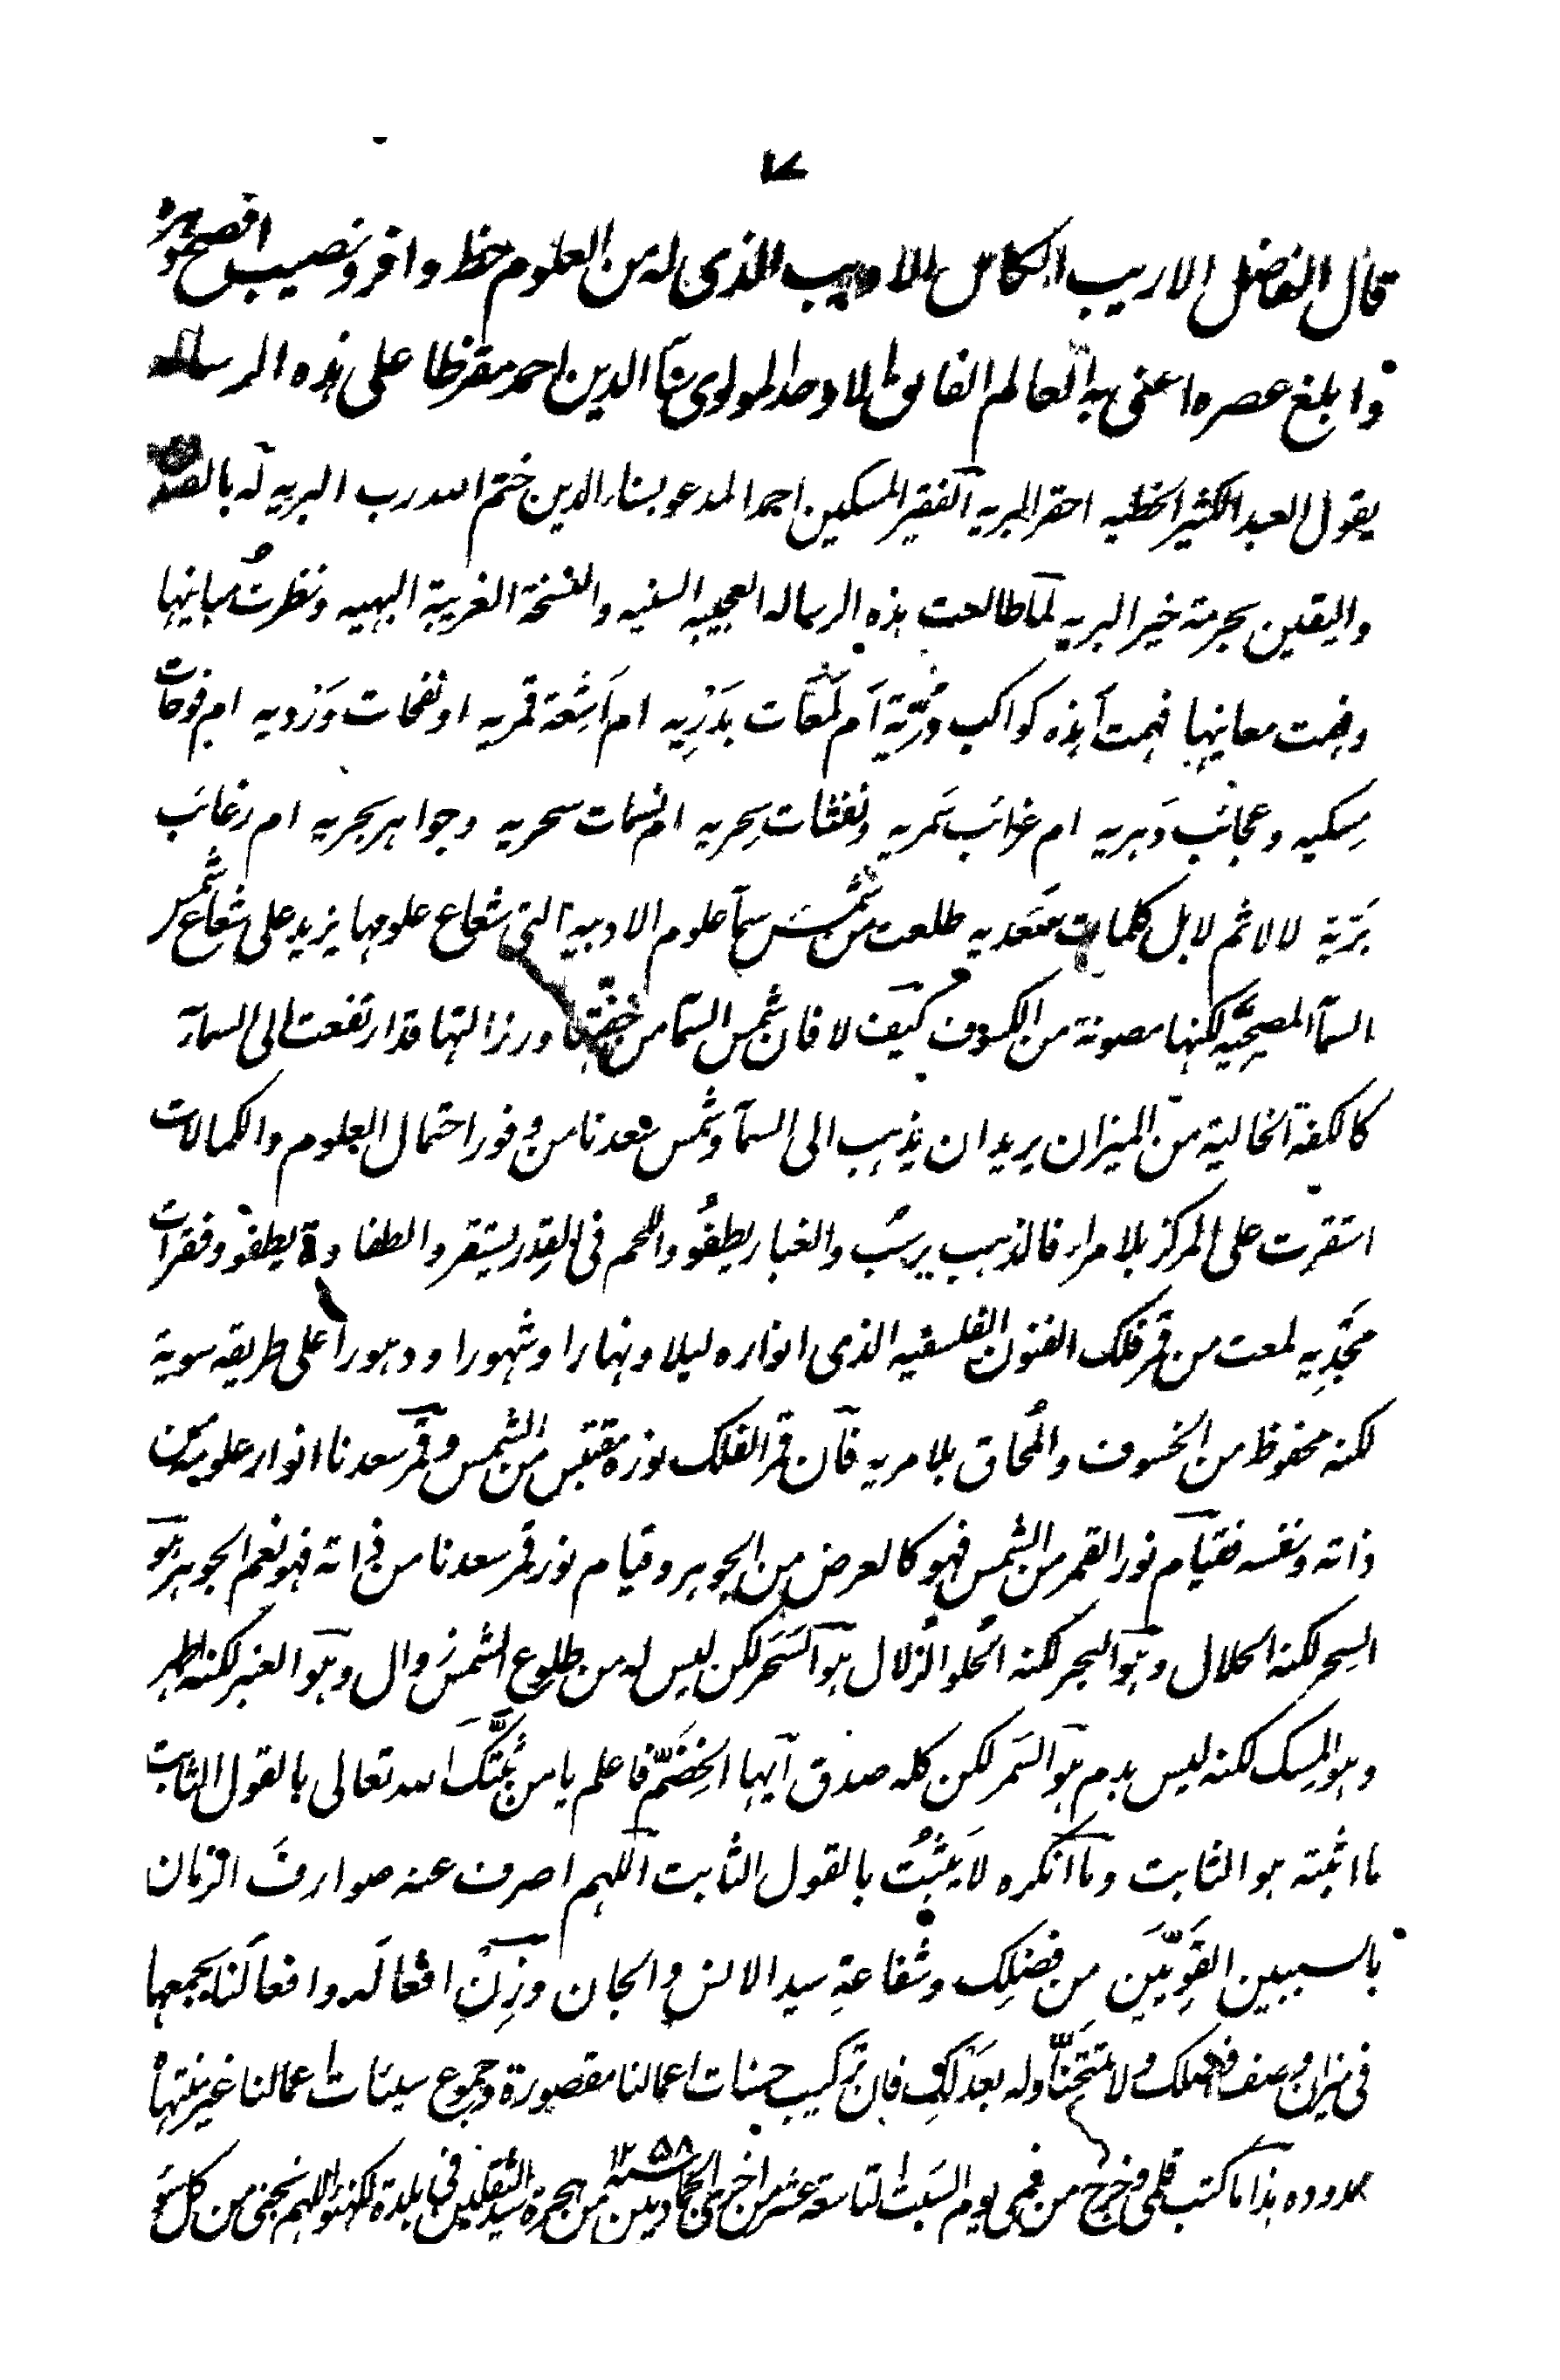 ١٧
قال الفاضل الاريب الكامل الاديب الذى له من العلوم حظ وافر ونصيب افصح دهره
وابلغ عصره اعنى به العالم الفائق الاوحد المولوى سناء الدين احمد مقرظا على هذه الرساله
يقول العبد الكثير الخطيه احقر البريه الفقير المسكين احمد المدعو بسناء الدين ختم الله رب البريه له بالصدق
واليقين بحرمة خير البريه لما طالعت هذه الرساله العجيبه السنيه والنسخة الغريبة البهيه ونظرتُ مبانيها
وفهمت معانيها فهمت أهذه كواكب دُرّية أم لَمَعَات بَدْرِيه ام اَشِعّة قمريه او نفحات وَرْديه ام فوحات
مِسكيه وعجائب دَهريه ام غرائب ثمريه ونفثات سِحريه ام نسمات سحريه وجواهر بحريه ام رغائب
بَرّية لا لا ثم لا بل كلمات سَعَديه طلعت من شمس سمآ علوم الادبيه التى شعاع علومها يزيد على شعاع شمس
السمآ المصحيّه لكنها مصونة من الكسوف كيف لا فان شمس السمآ من خفتها ورزالتها قد ارتفعت الى السمآء
كالكفة الخالية من الميزان يريد ان يذهب الى السمآ وشمس سعدنا من وفور احتمال العلوم والكمالات
استقرت على المركز بلا مراء فالذهب يرسُب والغبار يطفُو واللحم فى القِدر يستقر والطفاوة يطفو وفقرات
مَجْدِيه لمعت من قمر فلك الفنون الفلسفيه الذى انواره ليلا ونهارا وشهورا ودهورا على طريقه سوية
لكنه محفوظ من الخسوف والمُحاق بلا مريه فان قمر الفلك نوره مقتبس من الشمس وقمر سعدنا انوار علويه من
ذاته ونفسه فقيام نور القمر من الشمس فهو كالعرض من الجوهر وقيام نور قمر سعدنا من ذاته فهو نعم الجوهر هو
السِحر لكنه الحلال وهو البحر لكنه الحُلو الزُلال هو السَحَر لكن ليس له من طلوع الشمس زوال وهو العنبر لكنه اطهر
وهو المِسك لكنه ليس بدم هو السَمَر لكن كله صدق ايها الخِضَمّ فاعلم يا من ثبّتك الله تعالى بالقول الثابت
ما اثبته هو الثابت وما انكره لا يَثبُتُ بالقول الثابت اللهم اصرف عنه صوارفَ الزمان
بالسببين القَوِيّين من فضلِك وشفاعةِ سيد الانس والجان وزِنْ افعالَه وافعالَنا بجمعها
فى ميزان وصف فضلك ولا تمتحِنّا وله بعَدْلِك فان تركيب حسنات اعمالنا مقصورة وجموع سيئات اعمالنا غير منتهاة
محدوده هذا ما كتب قلمى وخرج من فمى يوم السَبت التاسعة عشر من اخرى الجماديين سنه ١٢٥٨ من هجرة سيد الثقلين فى بلدة لكهنؤ اللهم نجنى من كل سُوء